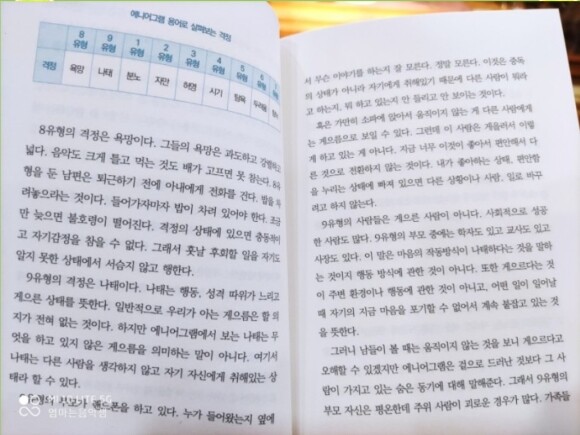 에니어그램 용어로 살펴보는 격정
8 유형 9 유형 1 유형 2 유형 3 유형 4 유형 5 유형
격정 욕망 나태 분노 자만 허영 시기 탐욕
8유형의 격정은 욕망이다. 그들의 욕망은 과도하고 강렬하고
넓다. 음악도 크게 틀고 먹는 것도 배가 고프면 못 참는다. 8유
형을 둔 남편은 퇴근하기 전에 아내에게 전화를 건다. 밥을 차
려놓으라는 것이다. 들어가자마자 밥이 차려 있어야 한다. 조금
만 늦으면 불호령이 떨어진다. 격정의 상태에 있으면 충동적이
고 자기감정을 참을 수 없다. 그래서 훗날 후회할 일을 자기도
알지 못한 상태에서 서슴지 않고 행한다.
9유형의 격정은 나태이다. 나태는 행동, 성격 따위가 느리고
게으른 상태를 뜻한다. 일반적으로 우리가 아는 게으름은 할 의
지가 전혀 없는 것이다. 하지만 에니어그램에서 보는 나태는 무
엇을 하고 있지 않은 게으름을 의미하는 말이 아니다. 여기서
나태는 다른 사람을 생각하지 않고 자기 자신에게 취해있는 상
태라 할 수 있다.
부모가 헤드폰을 하고 있다. 누가 들어왔는지 옆에
서 무슨 이야기를 하는지 잘 모른다. 정말 모른다. 이것은 중독
의 상태가 아니라 자기에게 취해있기 때문에 다른 사람이 뭐라
고 하는지, 뭐 하고 있는지 안 들리고 안 보이는 것이다.
혹은 가만히 소파에 앉아서 움직이지 않는 게 다른 사람에게
는 게으름으로 보일 수 있다. 그런데 이 사람은 게을러서 이렇
게 하고 있는 게 아니다. 지금 너무 이것이 좋아서 편안해서 다
른 것으로 전환하지 않는 것이다. 내가 좋아하는 상태, 편안함
을 누리는 상태에 빠져 있으면 다른 상황이나 사람, 일로 바꾸
려고 하지 않는다.
9유형의 사람들은 게으른 사람이 아니다. 사회적으로 성공
한 사람도 많다. 9유형의 부모 중에는 학자도 있고 교사도 있고
사장도 있다. 이 말은 마음의 작동방식이 나태하다는 것을 말하
는 것이지 행동 방식에 관한 것이 아니다. 또한 게으르다는 것
이 주변 환경이나 행동에 관한 것이 아니고, 어떤 일이 일어날
때 자기의 지금 마음을 포기할 수 없어서 계속 붙잡고 있는 것
을 뜻한다.
그러니 남들이 볼 때는 움직이지 않는 것을 보니 게으르다고
오해할 수 있겠지만 에니어그램은 겉으로 드러난 것보다 그 사
람이 가지고 있는 숨은 동기에 대해 말해준다. 그래서 9유형의
부모 자신은 평온한데 주위 사람이 괴로운 경우가 많다. 가족들